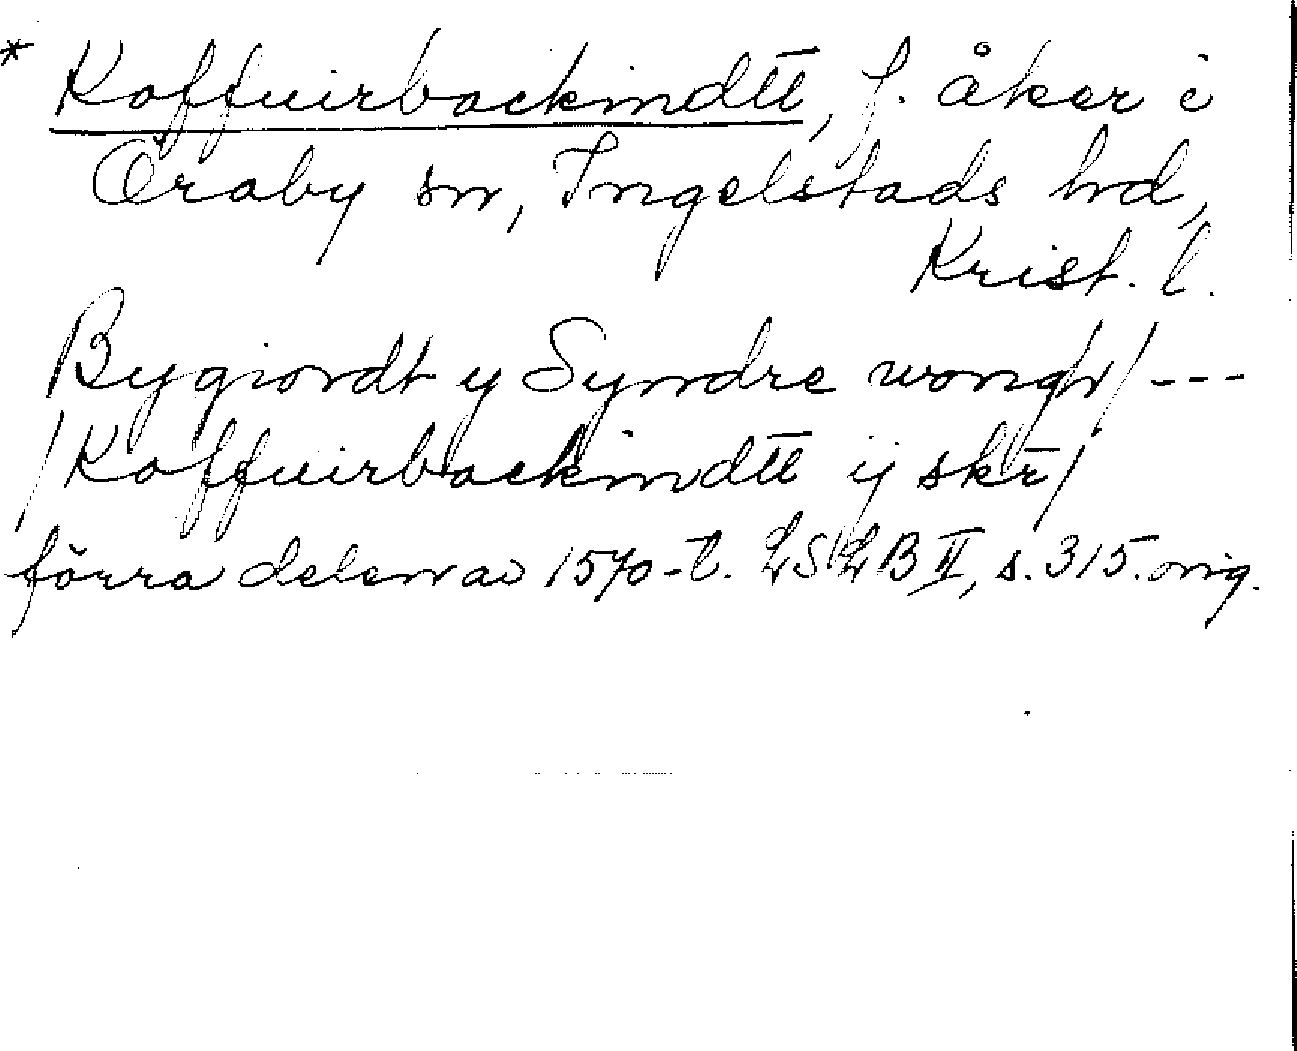 * Koffuirbackindtt, f. åker i
Öraby sn, Ingelstads hd,
Krist. l.
Bygiordt y Syndre wongh/ ---
/Koffuirbackindtt ij skr/
förra delen av 1570-t. LSLB II, s. 315. orig.